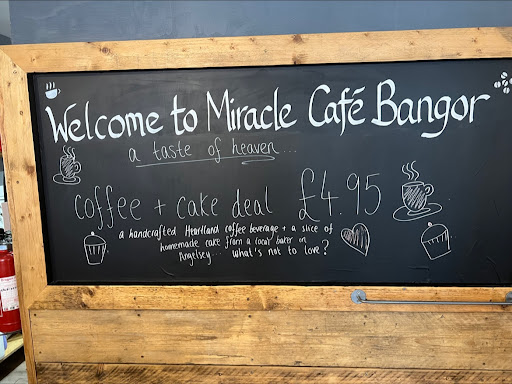 Welcome to Miracle Café Bangor
a taste of heaven...
coffee + cake deal £4.95
a handcrafted Heartland coffee beverage + a slice of
homemade cake from a local baker on
Anglesey... what's not to love?